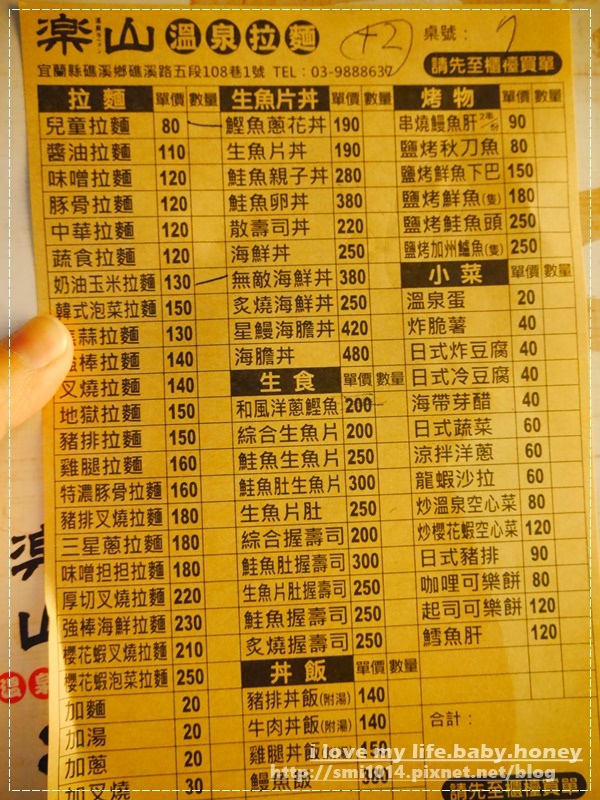 楽山 溫泉拉麵 +2 桌號：7
宜蘭縣礁溪鄉礁溪路五段108巷1號 TEL：03-9888637
請先至櫃檯買單
拉麵 單價 數量
兒童拉麵 80
醬油拉麵 110
味噌拉麵 120
豚骨拉麵 120
中華拉麵 120
蔬食拉麵 120
奶油玉米拉麵 130
韓式泡菜拉麵 150
蒜拉麵 130
棒拉麵 140
叉燒拉麵 140
地獄拉麵 150
豬排拉麵 150
雞腿拉麵 160
特濃豚骨拉麵 160
豬排叉燒拉麵 180
三星蔥拉麵 180
味噌担担拉麵 180
厚切叉燒拉麵 220
強棒海鮮拉麵 230
櫻花蝦叉燒拉麵 210
櫻花蝦泡菜拉麵 250
加麵 20
加湯 20
加蔥 20
加叉燒 30
生魚片丼 單價 數量
鰹魚蔥花丼 190
生魚片丼 190
鮭魚親子丼 280
鮭魚卵丼 380
散壽司丼 220
海鮮丼 250
無敵海鮮丼 380
炙燒海鮮丼 250
星鰻海膽丼 420
海膽丼 480
生食 單價 數量
和風洋蔥鰹魚 200
綜合生魚片 200
鮭魚生魚片 200
鮭魚肚生魚片 300
生魚片肚 250
綜合握壽司 200
鮭魚肚握壽司 300
生魚片肚握壽司 250
鮭魚握壽司 250
炙燒握壽司 250
丼飯 單價 數量
豬排丼飯(附湯) 140
牛肉丼飯(附湯) 140
雞腿丼飯 150
鰻魚飯 380
烤物 單價 數量
串燒鰻魚肝 2串/份 90
鹽烤秋刀魚 80
鹽烤鮮魚下巴 150
鹽烤鮮魚(隻) 180
鹽烤鮭魚頭 250
鹽烤加州鱸魚(隻) 250
小菜 單價 數量
溫泉蛋 20
炸脆薯 40
日式炸豆腐 40
日式冷豆腐 40
海帶芽醋 40
日式蔬菜 60
涼拌洋蔥 60
龍蝦沙拉 60
炒溫泉空心菜 80
炒櫻花蝦空心菜 120
日式豬排 90
咖哩可樂餅 80
起司可樂餅 120
鱈魚肝 120
合計：
請先至櫃檯買單
楽
山
溫泉
i love my life.baby.honey
http://smi1014.pixnet.net/blog